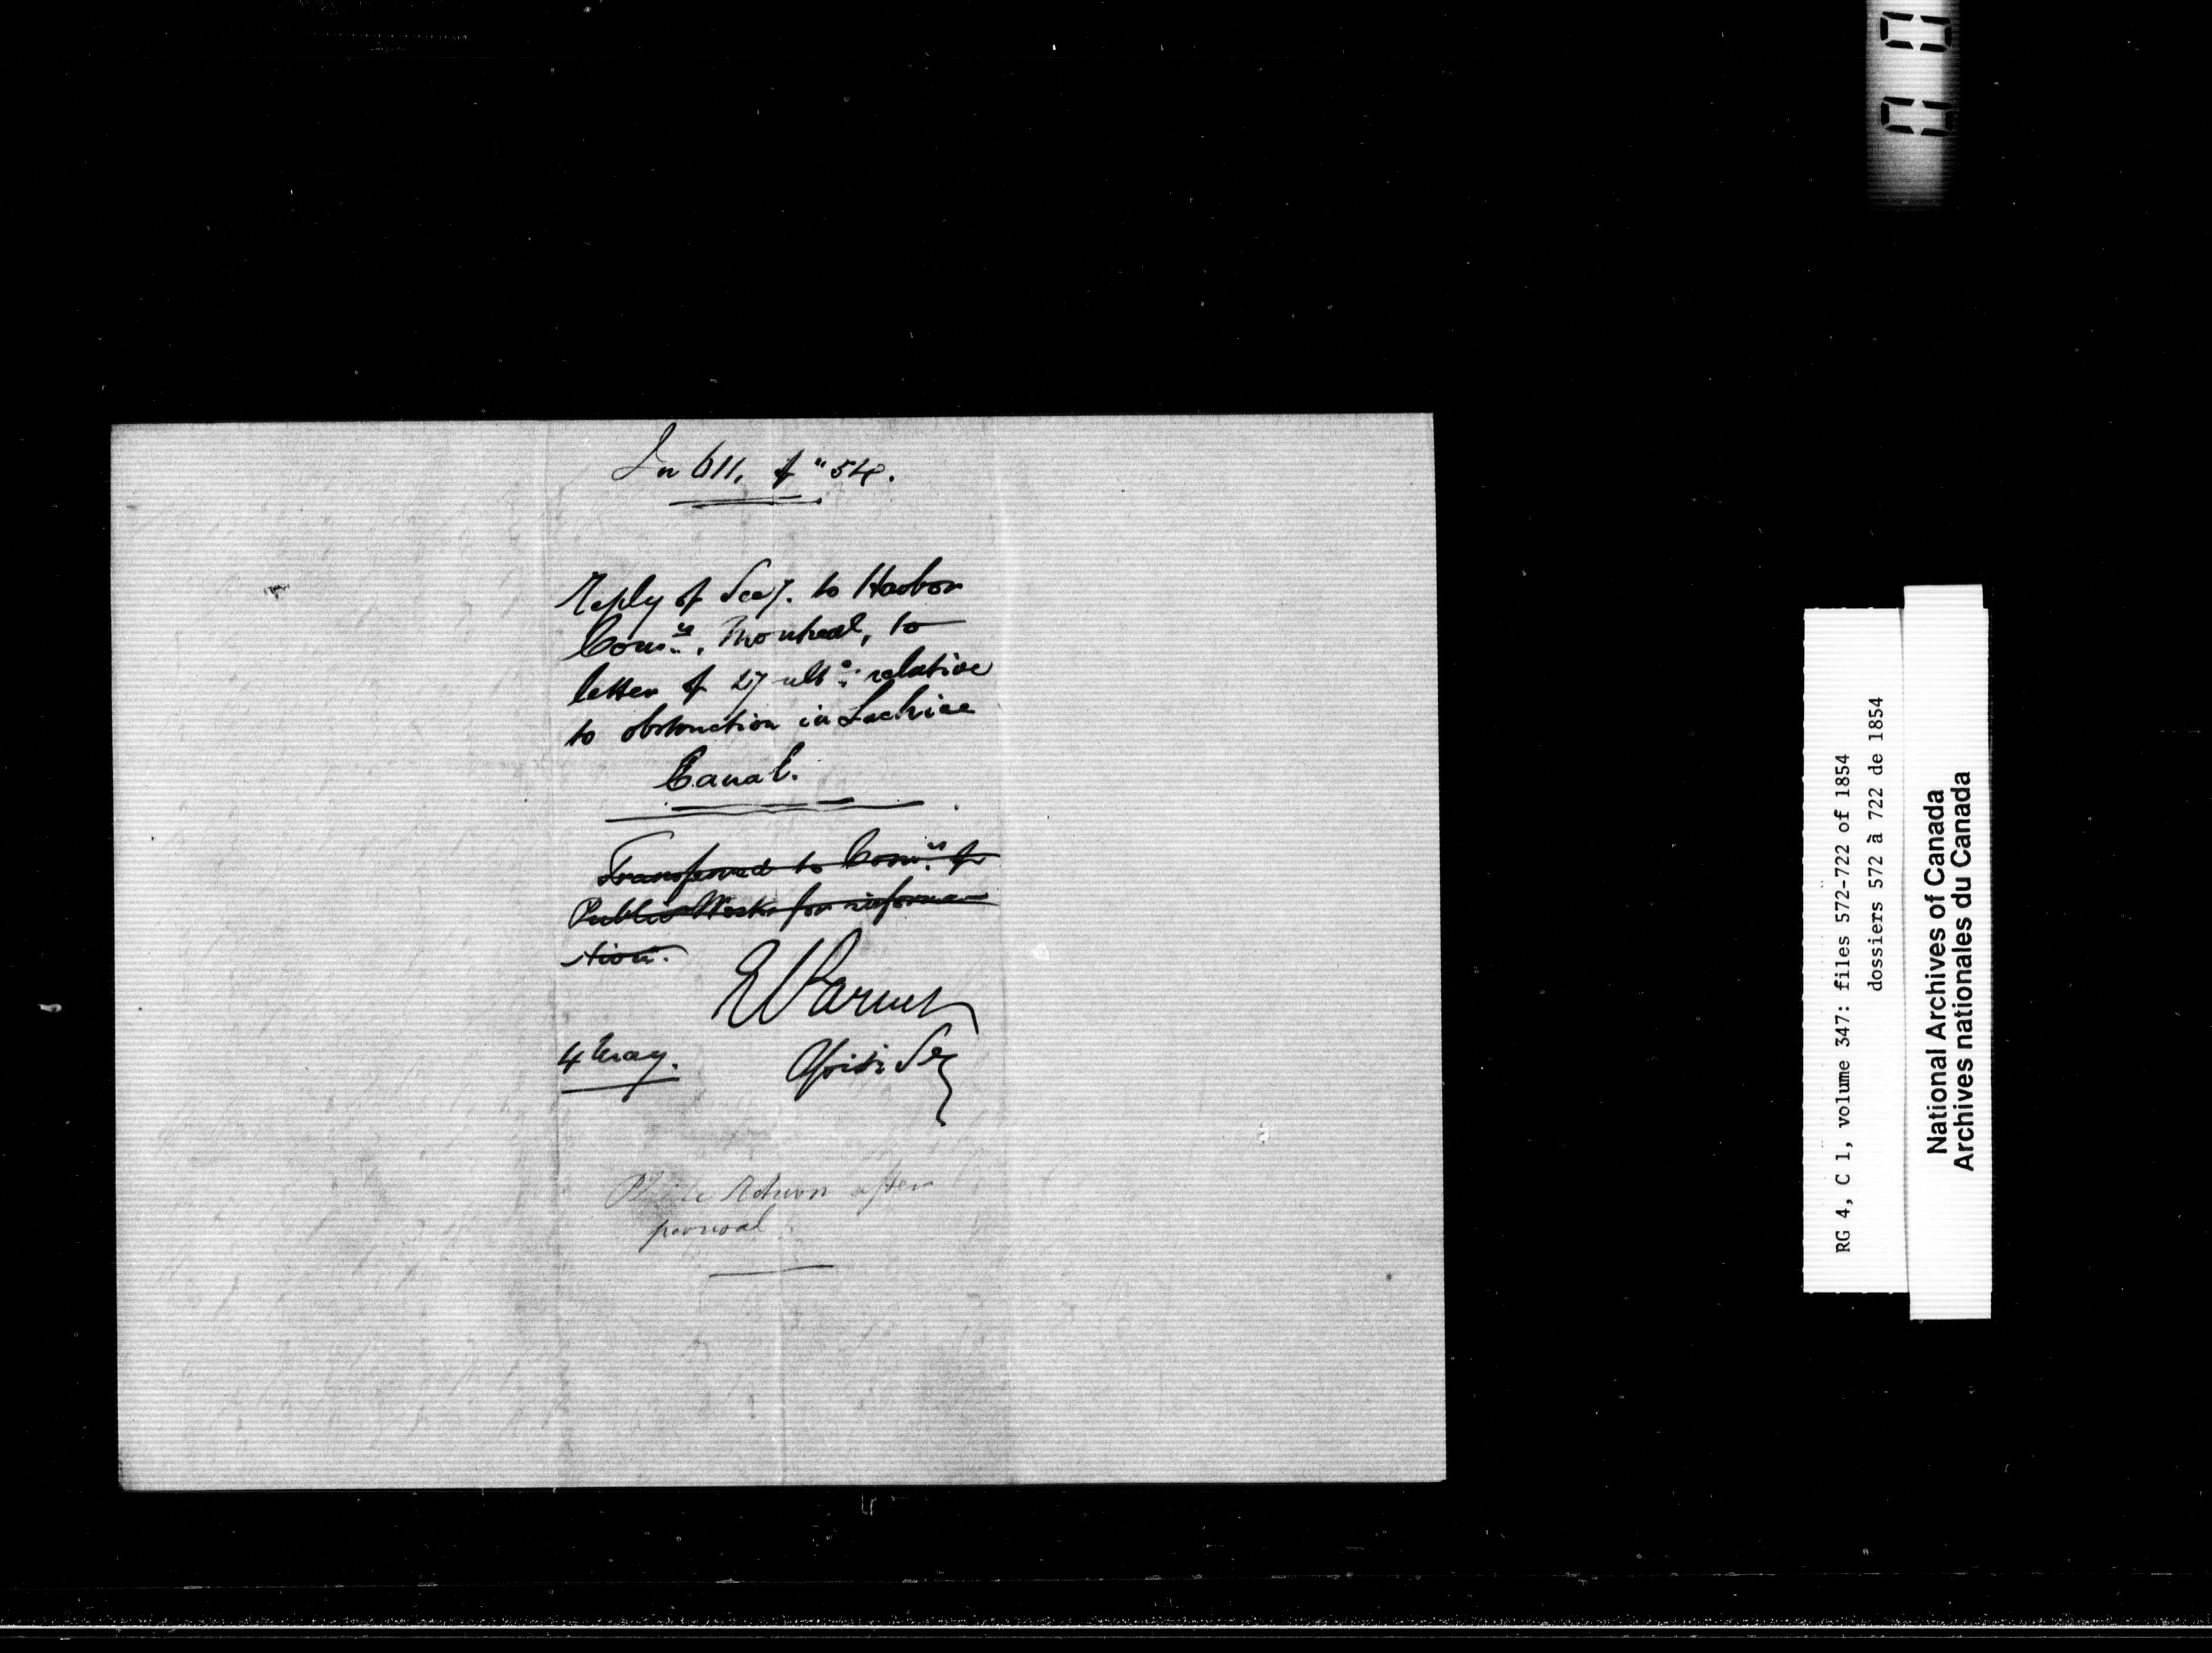 In 611. of "54.
Reply of Secy. to Harbor
Comrs. Montreal, to
letter of 27 ulto: relative
to obstruction in Lachine
Canal.
Transferred to Comrs. of
Public Works for informa-
tion.
4 May.
Please return after
perusal.
RG 4, C 1, volume 347: files 572-722 of 1854
dossiers 572 à 722 de 1854
National Archives of Canada
Archives nationales du Canada